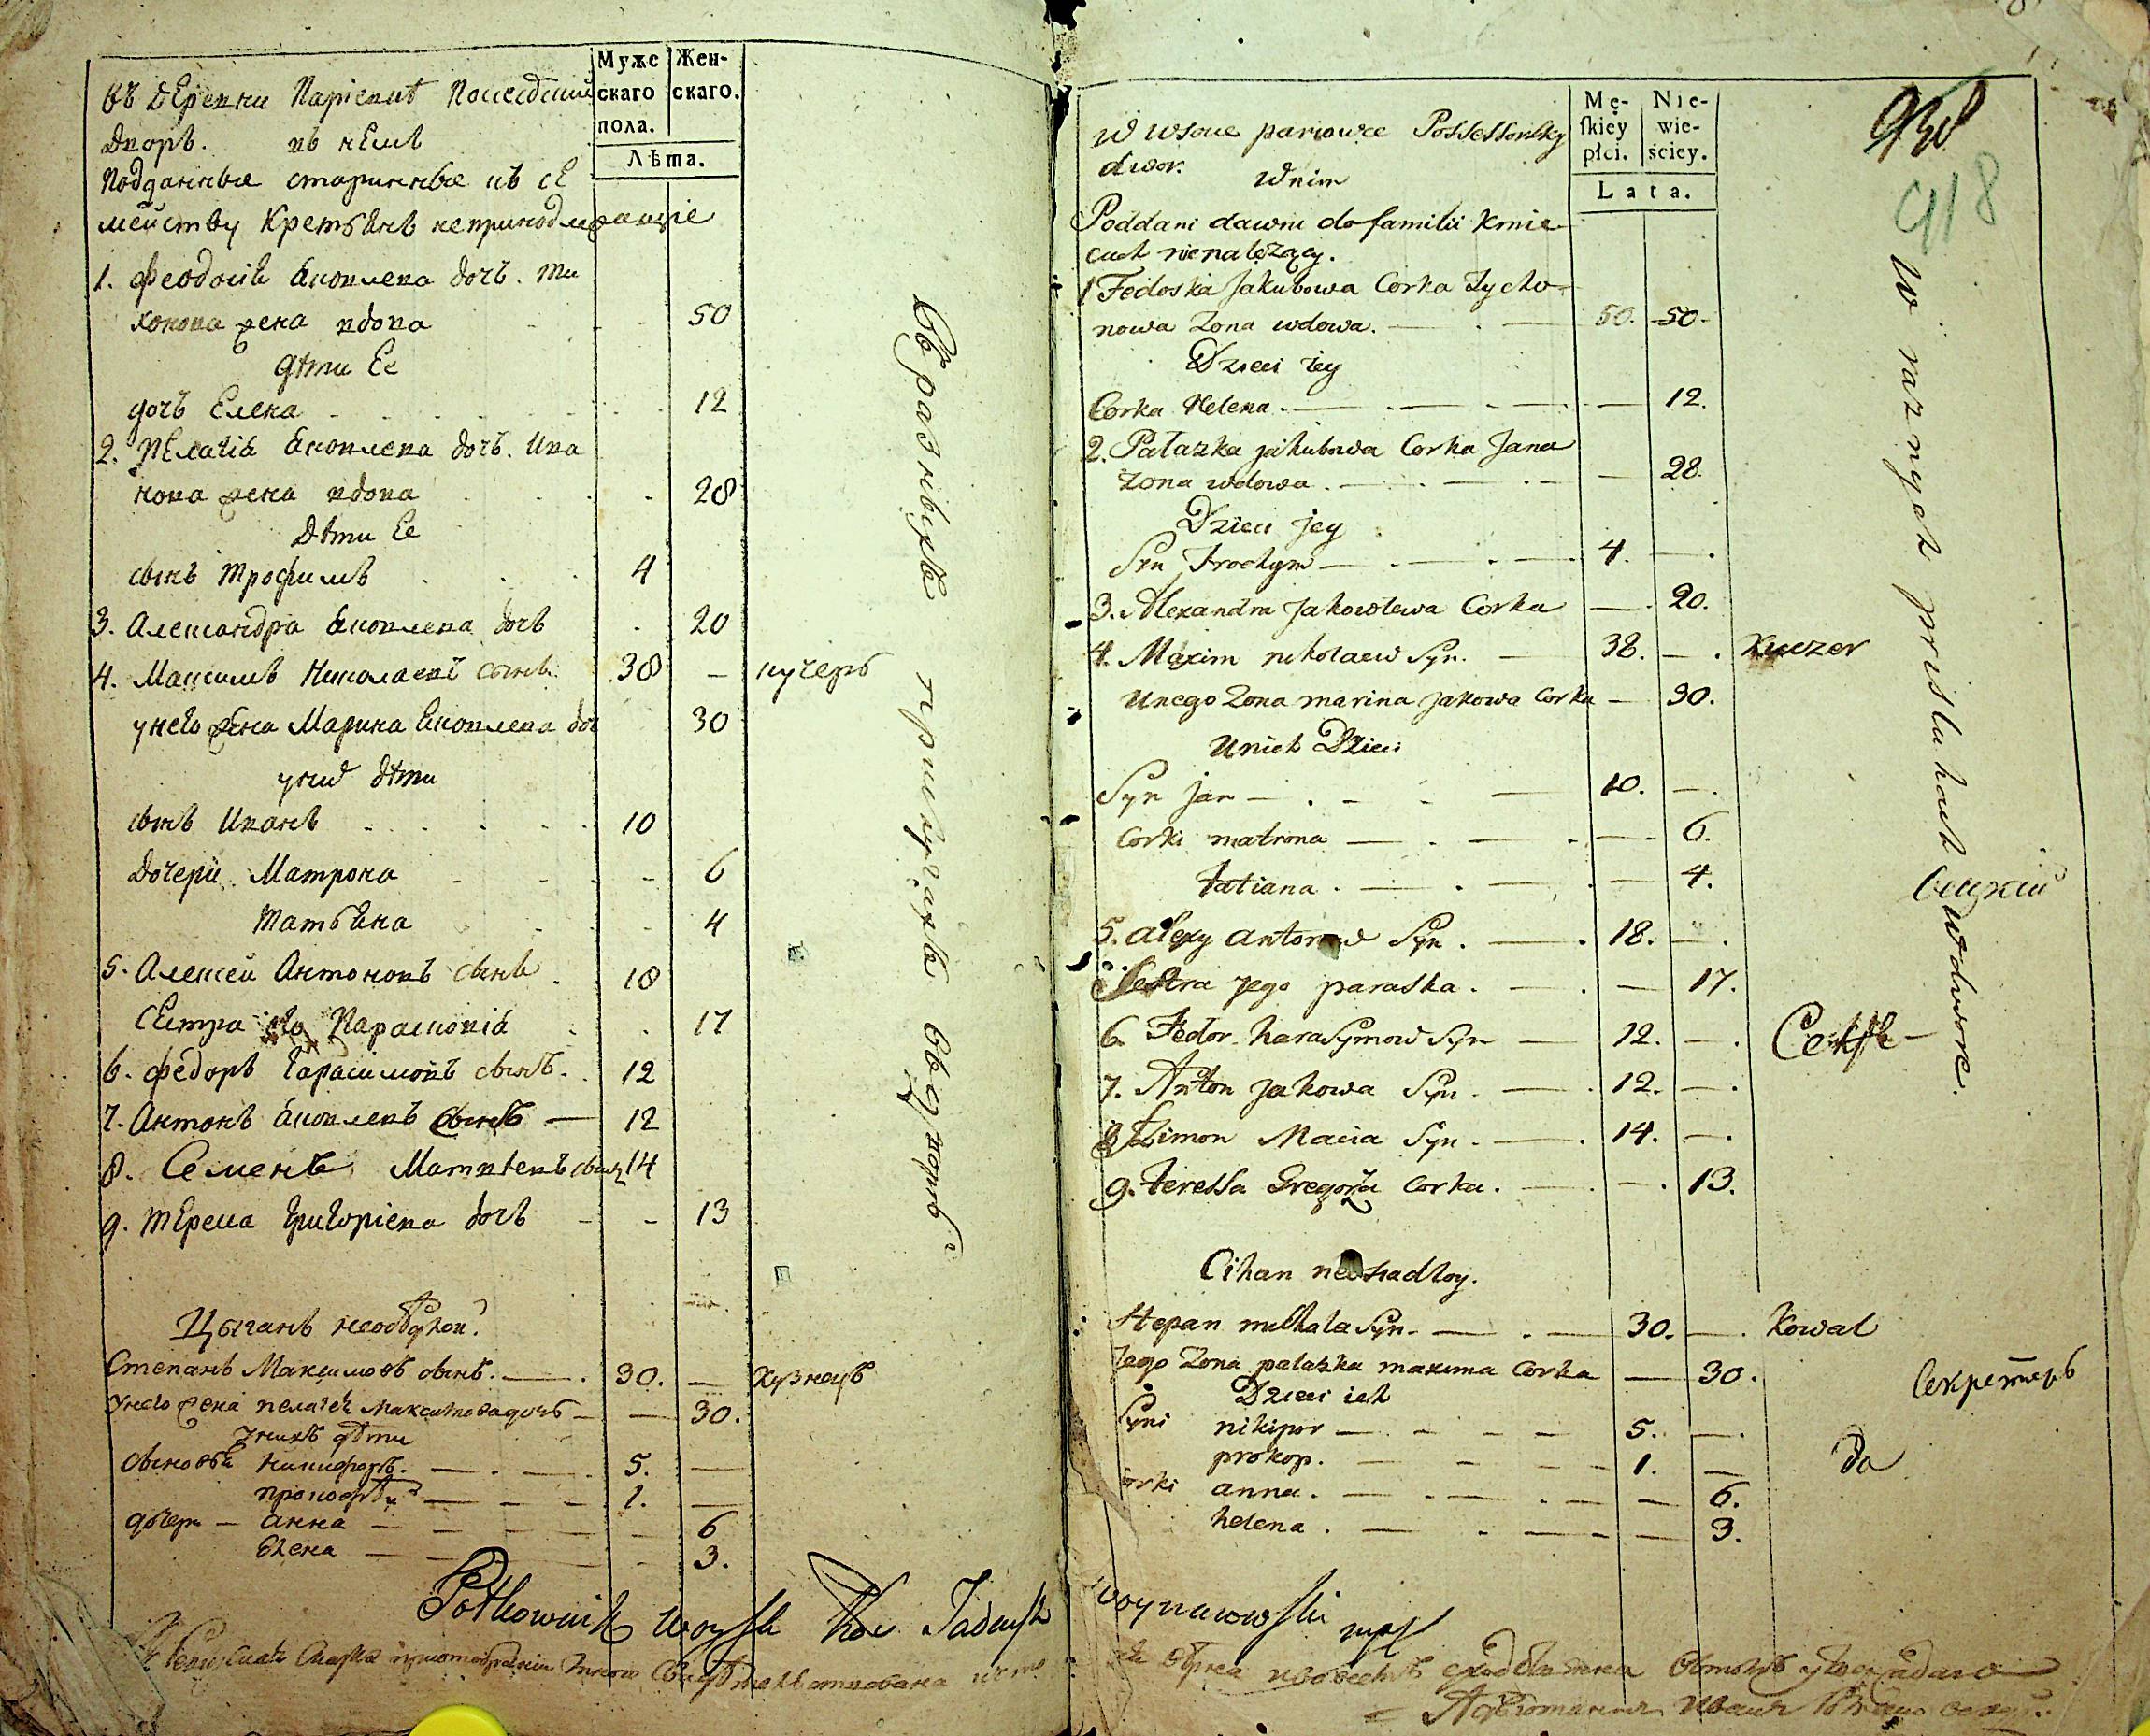 Муже
скаго
пола.
Жен-
скаго.
Лѣта.
въ деревни Паріевцѣ Посесðкий
дворъ. въ немъ
Подданные старинные къ се
мейству Крестьянъ непринадлежащие
1. Феодосія Яковлева дочъ. Ти
хонова жена вдова 50
дѣти Ее
дочъ Елена 12
2. Пелагія Яковлева дочъ. Ива
нова жена вдова 28
Дѣти Ее
сынъ Трофимъ 4
3. Александра Яковлева дочъ 20
4. Максимъ Николаевъ сынъ 38 — кучеръ
у него жена Марина Яковлева доч 30
у них дѣти
сынъ Иванъ 10
Дочери Матрона 6
Татьяна 4
5. Алексей Антоновъ сынъ 18
Сестра его Парасковія 17
6. Федоръ Гарасимовъ сынъ. 12
7. Антонъ Яковлевъ Сынъ — 12
8. Семенъ Матвѣевъ сынъ 14
9. Тереса Григоріева дочъ 13
Въ разныхъ прислугахъ въ дворѣ
Цыганъ
Степанъ Максимовъ сынъ. 30. — кузнецъ
Унего жена пелагея Максимова дочъ — 30.
У нихъ дѣти
сыновья никифоръ. 5. —
прокофей 1. —
дочери — анна 6
Елена 3.
Mę-
skiey
płci.
Nie-
wie-
ściey.
Lata.
918
W wsoue pariowce Possessorsky
dwor. W nim
Poddani dawni do familii Kmie-
cuch nienależący.
1 Fedoska Jakubowa Corka Tycho-
nowa Zona wdowa. 50. 50.
Dzieci iey
Corka Helena. 12.
2. Palazka jakubowa Corka Jana
zona wdowa. 28.
Dzieci jey
Syn Trochym 4.
3. Alexandra Jakowlewa Corka 20.
4. Maxim nikolaiew Syn. 38. — Kuczer
Unego Zona marina Jakowa Corka — 30.
Unich Dzieci
Syn jan 10. —
Corki matrona 6.
tatiana 4.
5. alexy antonow Syn. 18. —
Sestra jego paraska. — 17.
6. Fedor harasymow Syn — 12. —
7. Anton jakowa Syn. 12. —
8 Szimon Macia Syn. 14. —
9. teressa Gregorża Corka. — 13.
W raznych prisluhach w dwore.
Cihan neosiadłoy.
Stepan michala Syn. 30. — Kowal
Jego Zona palazka maxima Corka — 30.
Dzieci ich
Syni nikipor 5. —
prokop. 1. —
Corki anna. 6.
helena. 3.
Секретарь
Półkownik woysk Tadeusz
woynarowski mp